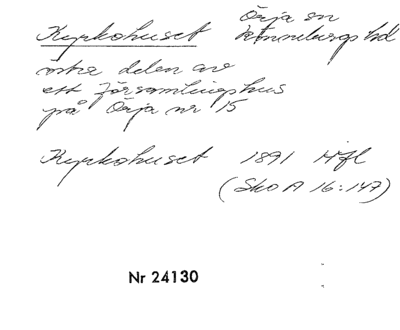 Örja sn
Kyrkohuset Rönnebergs hd
östra delen av
ett församlingshus
på Örja nr 15
Kyrkohuset 1891 Hfl
(Sko A 16:147)
Nr 24130